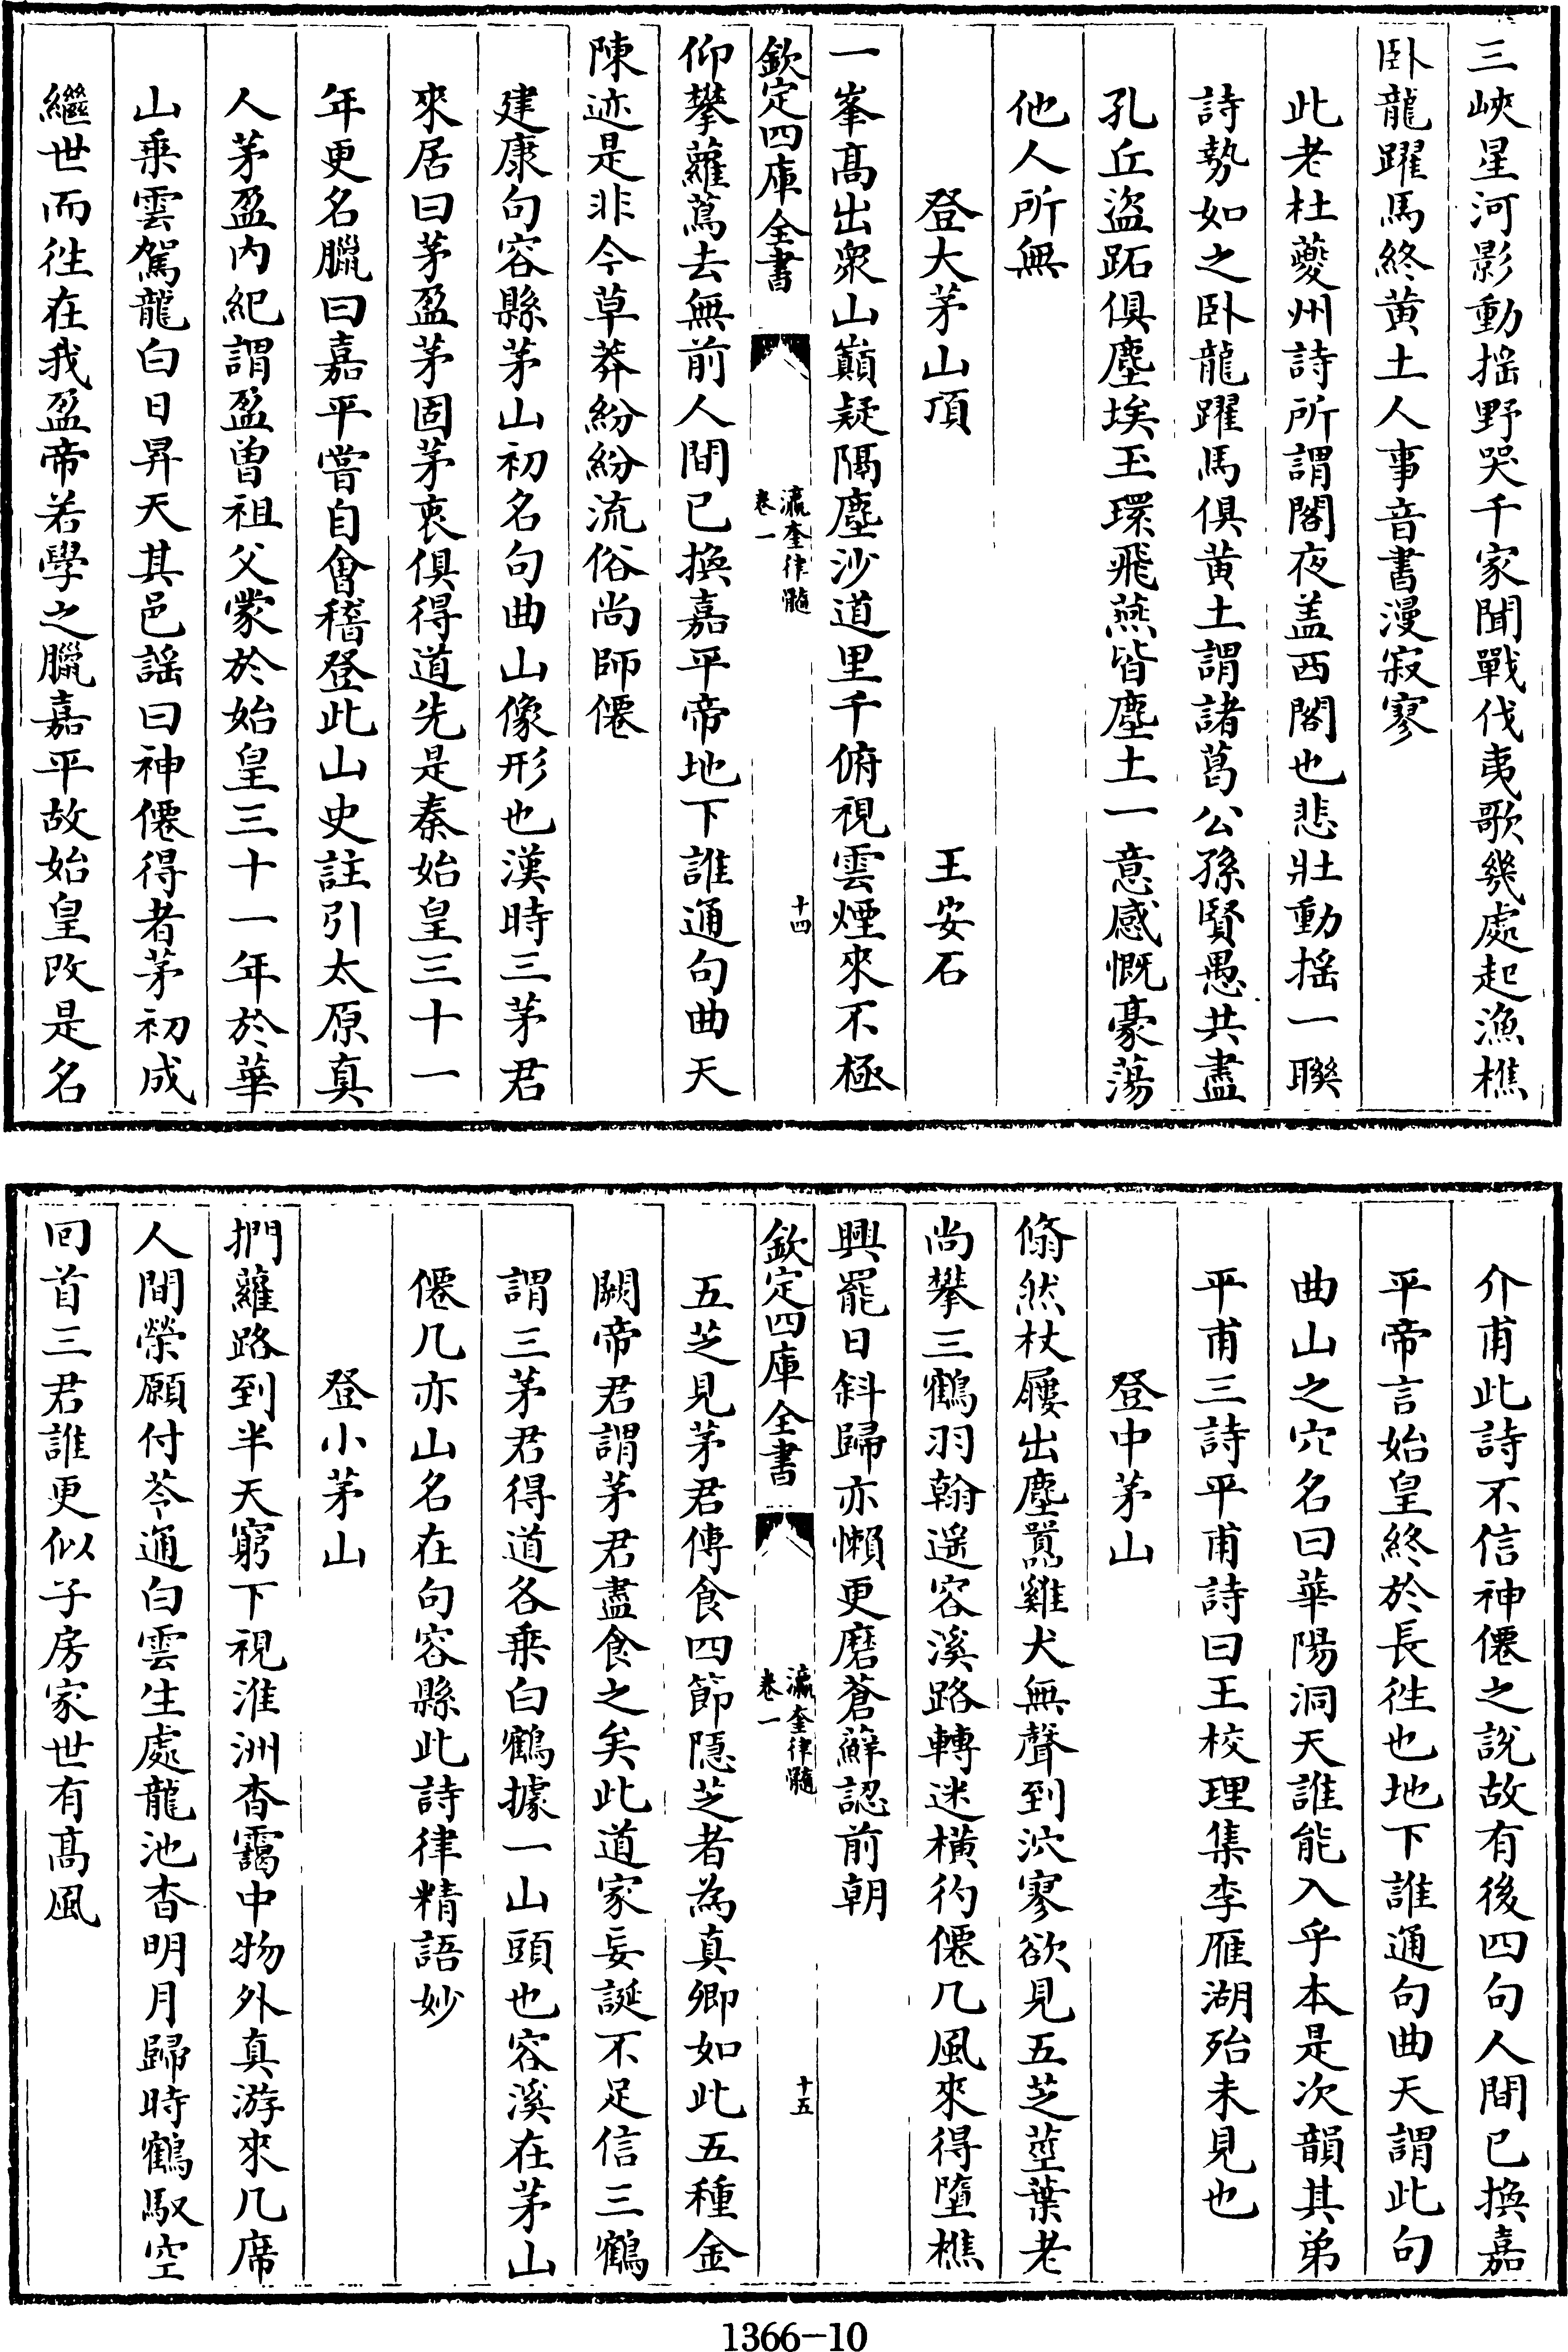 三峽星河影動揺野哭千家聞戰伐夷歌幾處起漁樵
卧龍躍馬終黄土人事音書漫寂寥
此老杜夔州詩所謂閣夜盖西閣也悲壯動揺一聯
詩勢如之卧龍躍馬俱黄土謂諸葛公孫賢愚共盡
孔丘盜跖俱塵埃玉環飛燕皆塵土一意感慨豪蕩
他人所無
登大茅山頂 王安石
一峯髙出衆山巔疑隔塵沙道里千俯視雲煙來不極
欽定四庫全書 瀛奎律髓 卷一 十四
仰攀蘿蔦去無前人間已換嘉平帝地下誰通句曲天
陳迹是非今草莽紛紛流俗尚師僊
建康句容縣茅山初名句曲山像形也漢時三茅君
來居曰茅盈茅固茅衷俱得道先是秦始皇三十一
年更名臘曰嘉平嘗自會稽登此山史註引太原真
人茅盈内紀謂盈曽祖父蒙於始皇三十一年於華
山乗雲駕龍白日昇天其邑謡曰神僊得者茅初成
繼世而徃在我盈帝若學之臘嘉平故始皇改是名
介甫此詩不信神僊之說故有後四句人間已換嘉
平帝言始皇終於長徃也地下誰通句曲天謂此句
曲山之穴名曰華陽洞天誰能入乎本是次韻其弟
平甫三詩平甫詩曰王校理集李雁湖殆未見也
登中茅山
翛然杖屨出塵囂雞犬無聲到泬寥欲見五芝莖葉老
尚攀三鶴羽翰遥容溪路轉迷橫彴僊几風來得墮樵
興罷日斜歸亦懶更磨蒼蘚認前朝
欽定四庫全書 瀛奎律髓 卷一 十五
五芝見茅君傳食四節隱芝者為真卿如此五種金
闕帝君謂茅君盡食之矣此道家妄誕不足信三鶴
謂三茅君得道各乗白鶴據一山頭也容溪在茅山
僊几亦山名在句容縣此詩律精語妙
登小茅山
捫蘿路到半天窮下視淮洲杳靄中物外真游來几席
人間榮願付苓通白雲生處龍池杳明月歸時鶴馭空
回首三君誰更似子房家世有髙風
1366-10